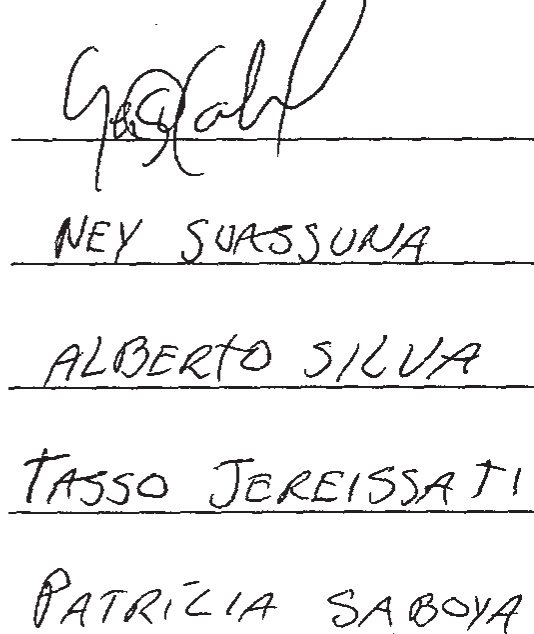 NEY SUASSUNA
ALBERTO SILVA
TASSO JEREISSATI
PATRÍCIA SABOYA